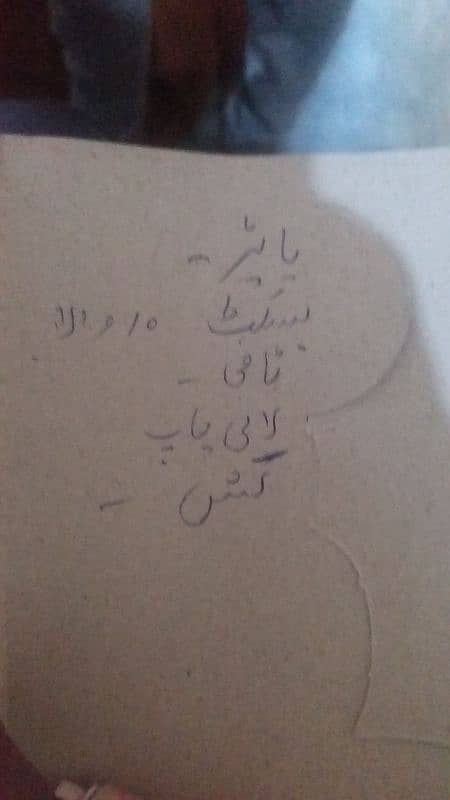 پاپڑ -
بسکٹ ۱۰ والا
ٹافی -
لالی پاپ
کش -